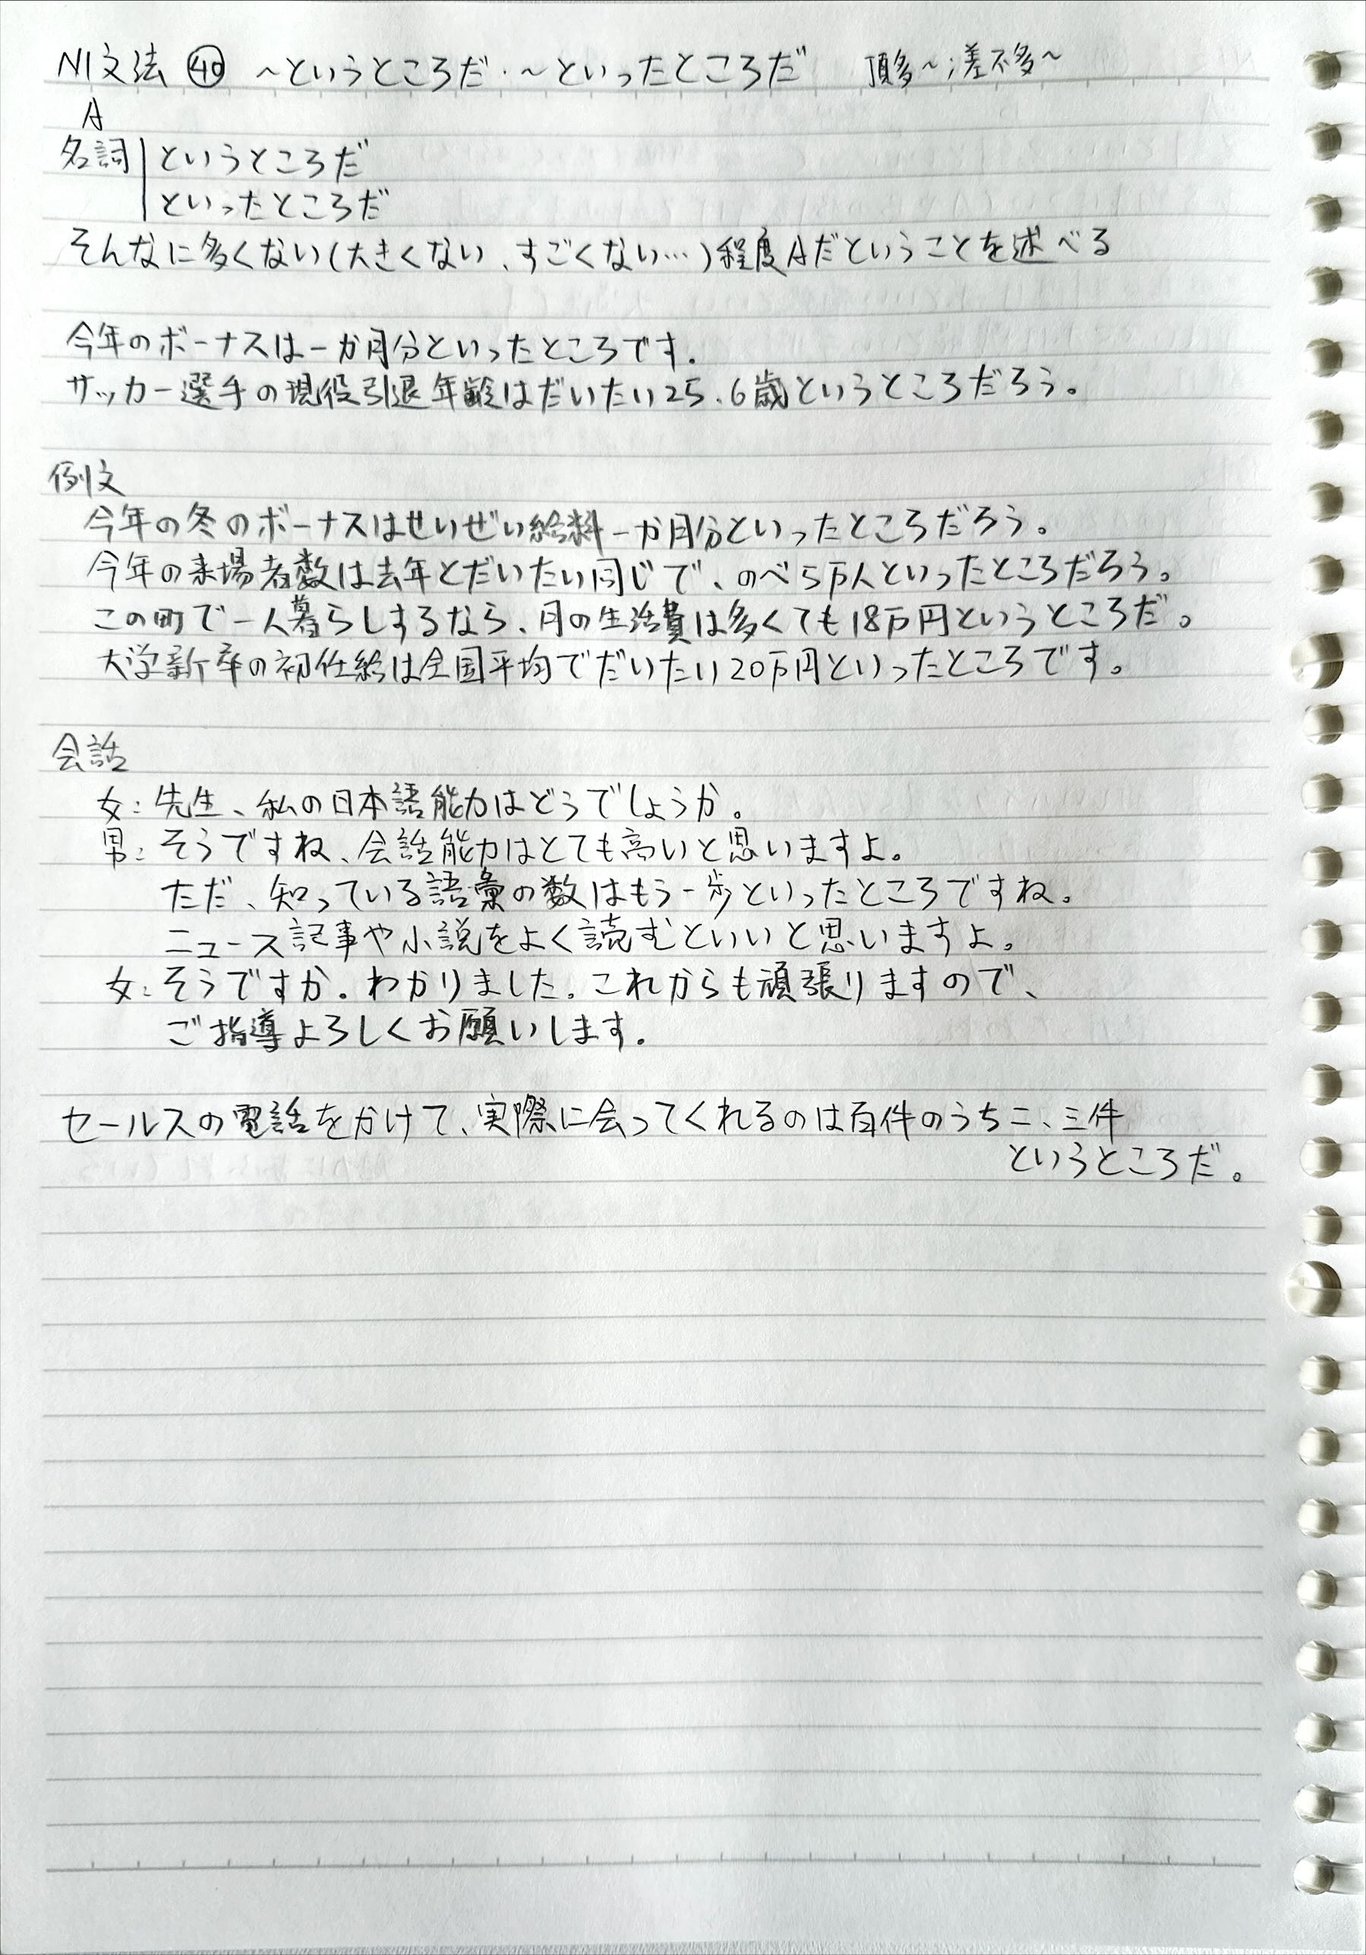 N1文法 ㊵ ～というところだ・～といったところだ 頂多～；差不多～
A
名詞 というところだ
といったところだ
そんなに多くない(大きくない、すごくない…)程度Aだということを述べる
今年のボーナスは一か月分といったところです。
サッカー選手の現役引退年齢はだいたい25、6歳というところだろう。
例文
今年の冬のボーナスはせいぜい給料一か月分といったところだろう。
今年の来場者数は去年とだいたい同じで、のべ5万人といったところだろう。
この町で一人暮らしするなら、月の生活費は多くても18万円というところだ。
大学新卒の初任給は全国平均でだいたい20万円といったところです。
会話
女：先生、私の日本語能力はどうでしょうか。
男：そうですね、会話能力はとても高いと思いますよ。
ただ、知っている語彙の数はもう一歩といったところですね。
ニュース記事や小説をよく読むといいと思いますよ。
女：そうですか。わかりました。これからも頑張りますので、
ご指導よろしくお願いします。
セールスの電話をかけて、実際に会ってくれるのは百件のうち二、三件
というところだ。